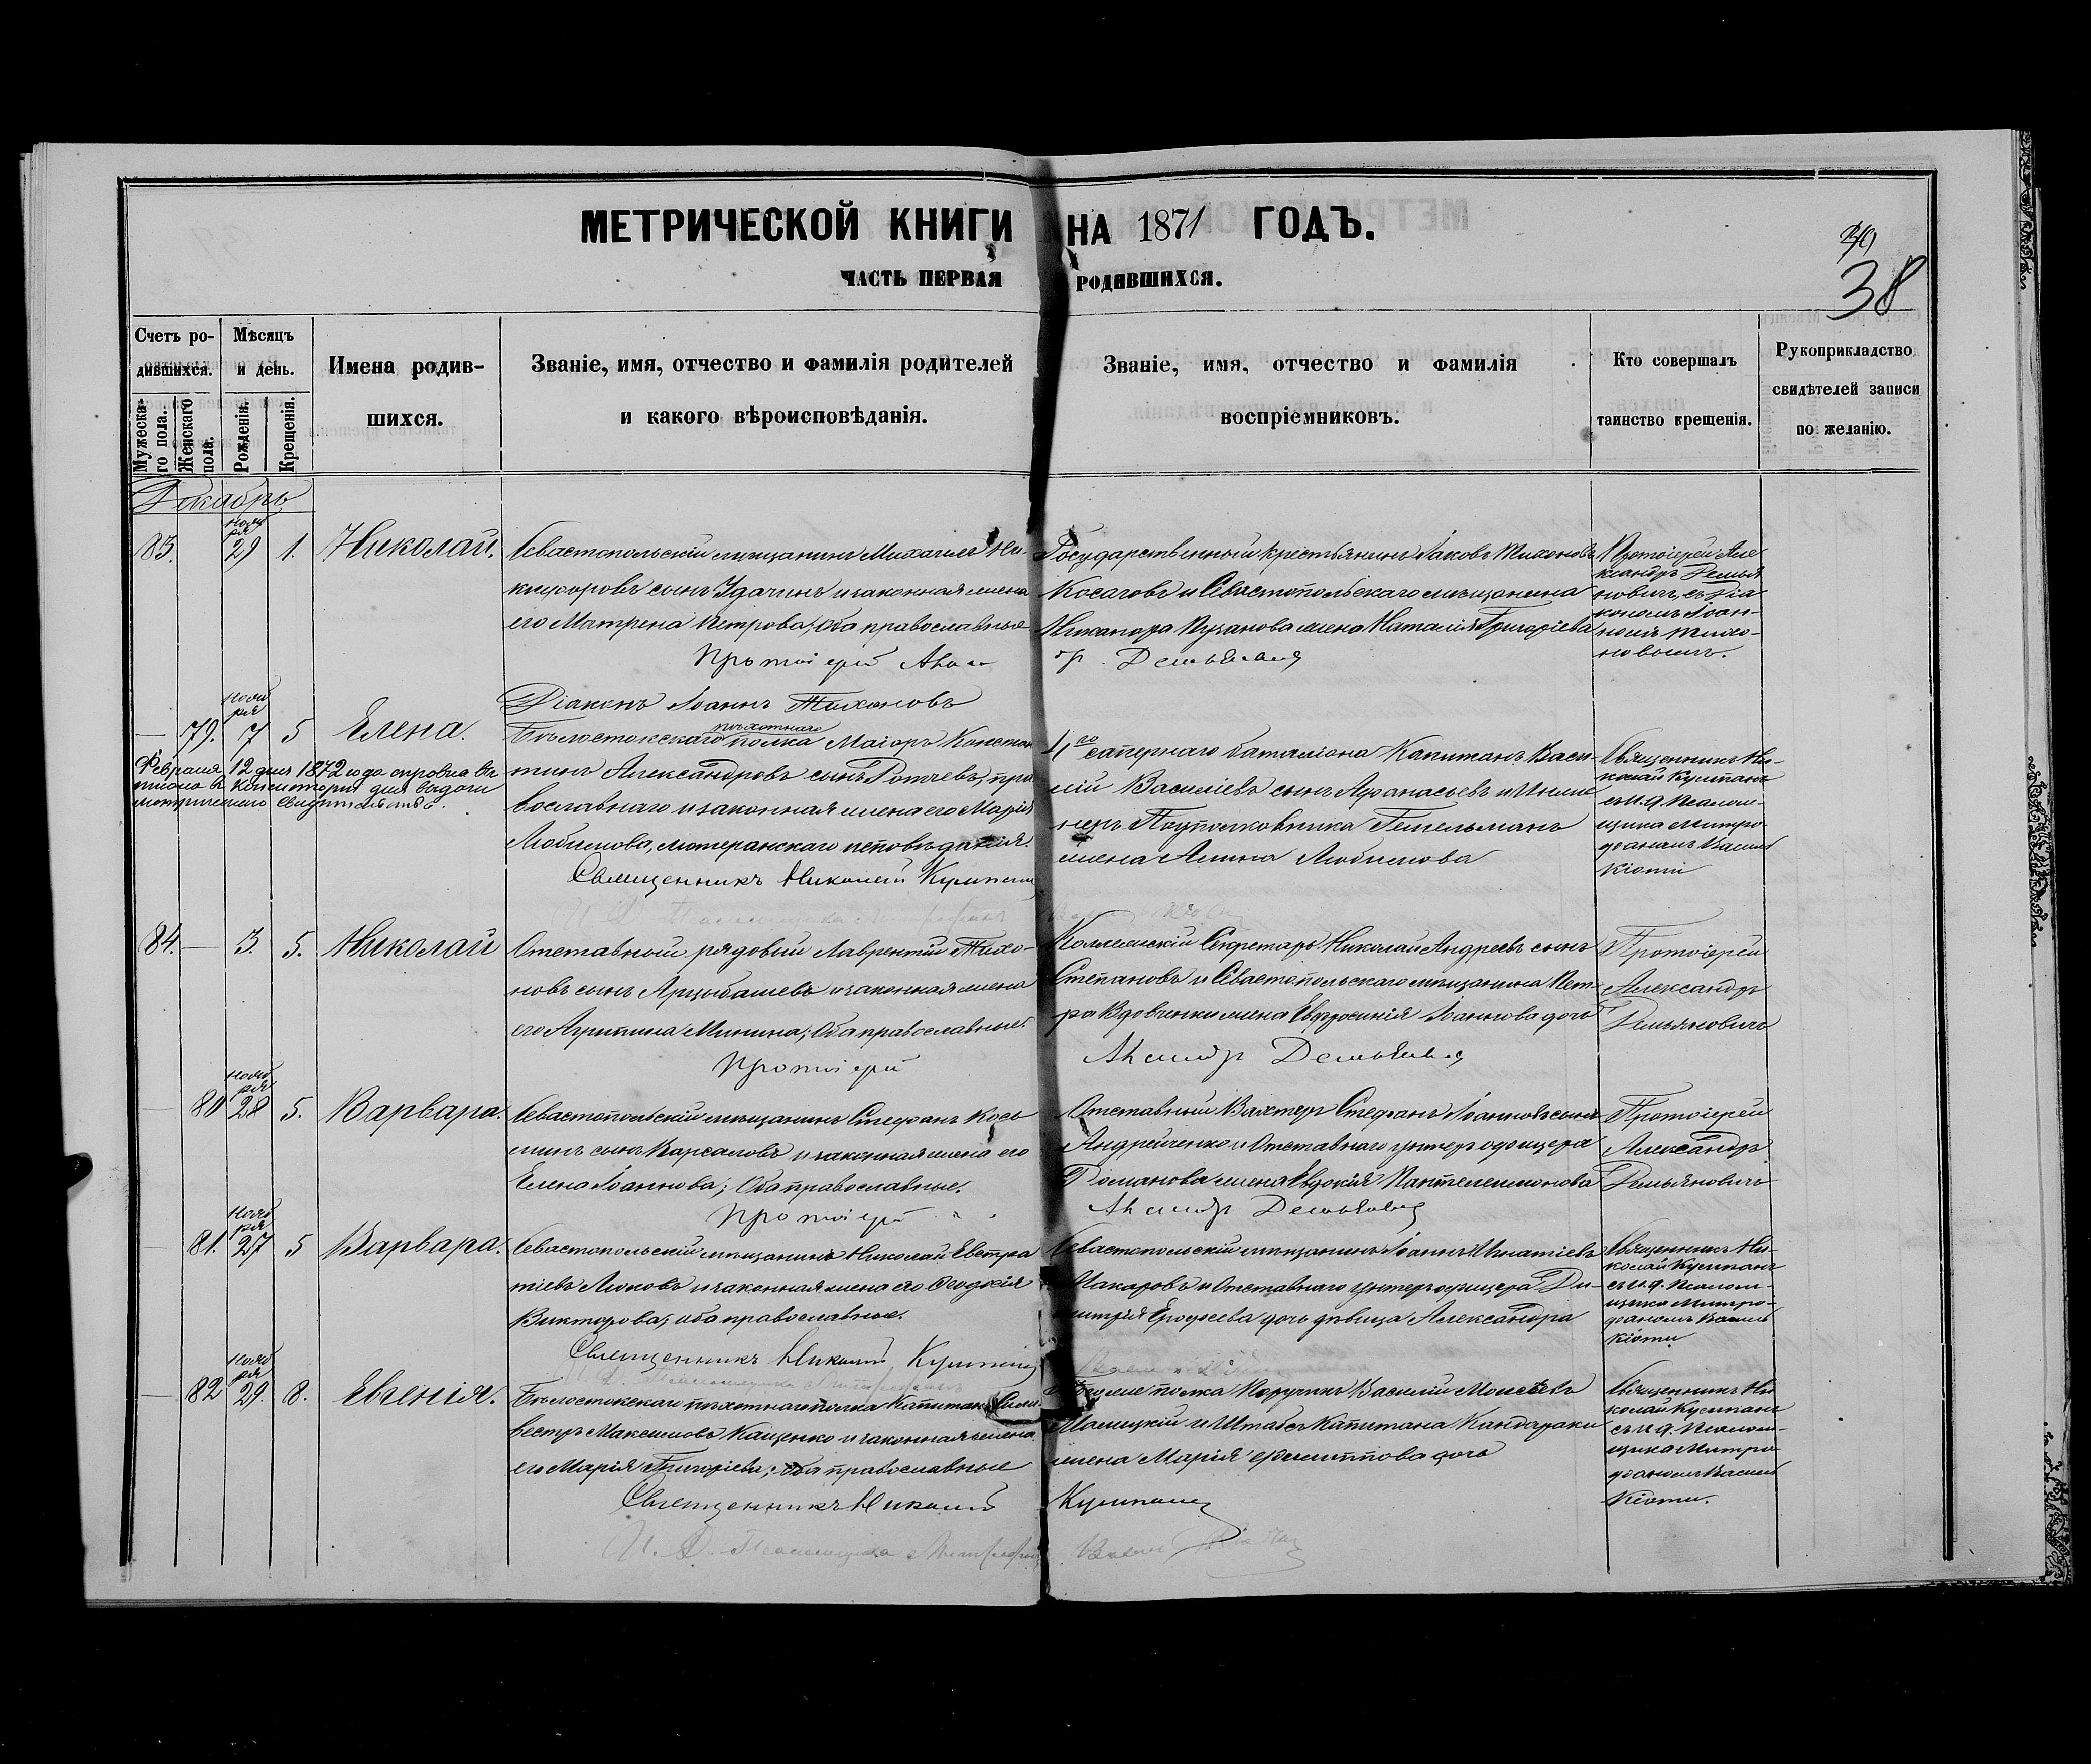 МЕТРИЧЕСКОЙ КНИГИ НА 1871 ГОДЪ.
ЧАСТЬ ПЕРВАЯ РОДИВШИХСЯ.
38
Счетъ родившихся.
Мужеска-
го пола.
Женскаго
пола.
Мѣсяцъ
и день.
Рожденія.
Крещенія.
Имена родив-
шихся.
Званіе, имя, отчество и фамилія родителей
и какого вѣроисповѣданія.
Званіе, имя, отчество и фамилія
воспріемниковъ.
Кто совершалъ
таинство крещенія.
Рукоприкладство
свидѣтелей записи
по желанію.
Декабрь
83. Ноября 29 1. Николай.
Севастопольскій мѣщанинъ Михаилъ Ни-
кифоровъ сынъ Удачинъ и законная жена
его Матрена Петрова; Оба православные
Государственный крестьянинъ Іаковъ Тихоновъ
Косаговъ и Севастопольскаго мѣщанина
Никанора Пузанова жена Наталія Григоріева
Протоіерей Але-
ксандръ Демья-
новичъ, съ діа-
кономъ Іоан-
номъ Тихо-
новымъ.
Протоіерей
Діаконъ Іоаннъ Тихоновъ
79. Ноября 7 5 Елена.
Февраля 12 дня 1872 года
Бѣлостокскаго пѣхотнаго полка Маіоръ Констан-
тинъ Александровъ сынъ Ротчевъ, пра-
вославнаго и законная жена его Марія
Любимова, лютеранскаго исповѣданія.
4го сапернаго баталіона Капитанъ Васи-
лій Василіевъ сынъ Афанасьевъ и Инже-
неръ Подполковника Гешельманъ
жена Алина Любимова
Священникъ Ни-
колай Кушпанъ
съ и. д. Псалом-
щика Митро-
фаномъ Васи
кіоти
Священникъ Николай
84. 3. 5. Николай
Отставный рядовый Лаврентій Тихо-
новъ сынъ Арцыбашевъ и законная жена
его Агрипина Минина; Оба православные
Коллежскій Секретарь Николай Андреевъ сынъ
Степановъ и Севастопольскаго мѣщанина Пет-
ра Вдовченки жена Евфросинія Іоаннова дочь
Протоіерей
Александръ
Демьяновичъ
Протоіерей
80 Ноября 28 5. Варвара.
Севастопольскій мѣщанинъ Стефанъ Козь-
минъ сынъ Варсаловъ и законная жена его
Елена Іоаннова; Оба православные.
Отставный Вахтеръ Стефанъ Іоанновъ сынъ
Андрейченко и Отставнаго унтеръ офицера
Романова жена Евдокія Пантелеимонова
Протоіерей
Александръ
Демьяновичъ
Протоіерей
81. Ноября 27 5 Варвара.
Севастопольскій мѣщанинъ Николай Евстра-
тіевъ Люковъ и законная жена его Феодосія
Викторова; оба православные.
Севастопольскій мѣщанинъ Іоаннъ Игнатіевъ
Макаровъ и Отставнаго унтеръ офицера Ди-
митрія Ерофеева дочь дѣвица Александра
Священникъ Ни-
колай Кушпанъ
съ и. д. Псалом-
щика Митро-
фаномъ Васи
кіоти
Священникъ Николай
82 Ноября 29. 8. Евгенія.
Бѣлостокскаго пѣхотнаго полка Капитанъ Силь-
вестръ Максимовъ Кащенко и законная жена
его Марія Григоріева; оба православные
полка Поручикъ Василій Моисѣевъ
Малицкій и Штабсъ Капитана Кандараки
жена Марія Филиппова дочь
Священникъ Ни
колай Кушпанъ
съ и. д. Псалом-
щика Митро-
фаномъ Васи
кіоти.
Священникъ Николай